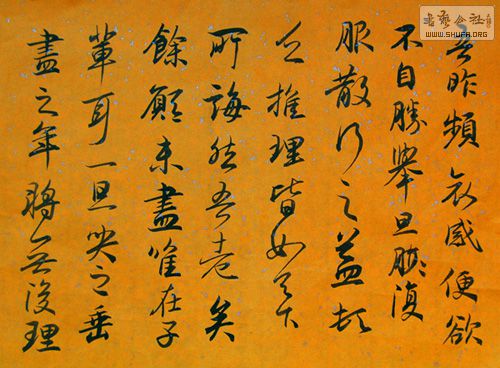 吾昨頻哀感便欲
不自勝舉旦復
服散行之益頓
乏推理皆如足下
所誨然吾老矣
餘願未盡唯在子
輩耳一旦哭之垂
盡之年將無復理
書藝公社
WWW.SHUFA.ORG